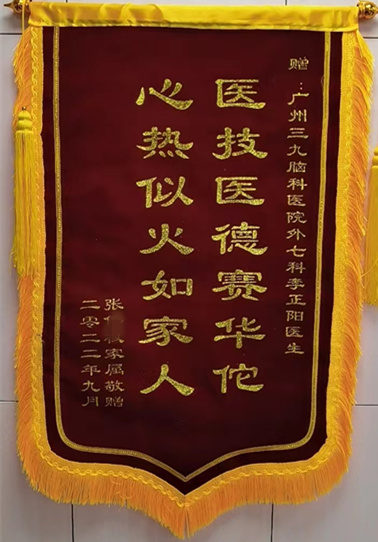 赠：广州三九脑科医院外七科李正阳医生
医技医德赛华佗
心热似火如家人
张家属敬赠
二零二二年九月